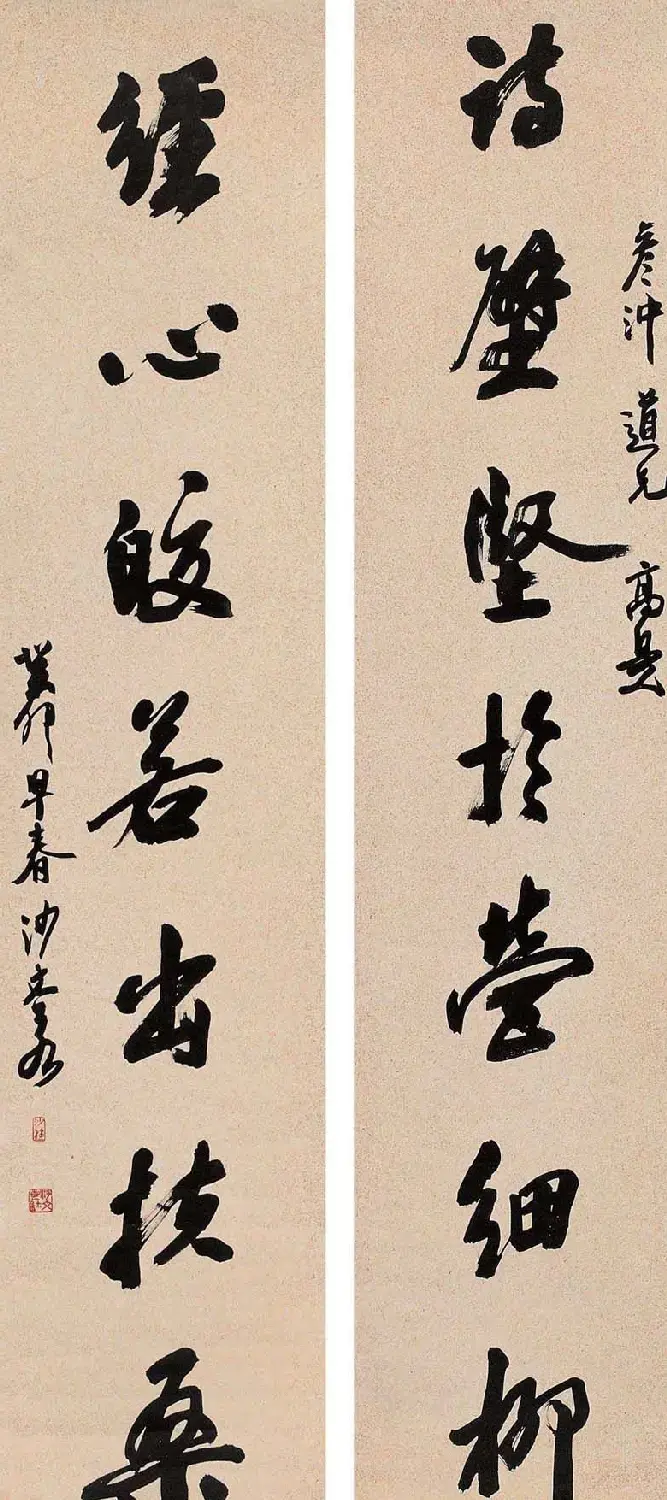 彦沖道兄 高是
詩壁堅於營細柳
經心皎若出扶桑
癸卯早春 沙孟海